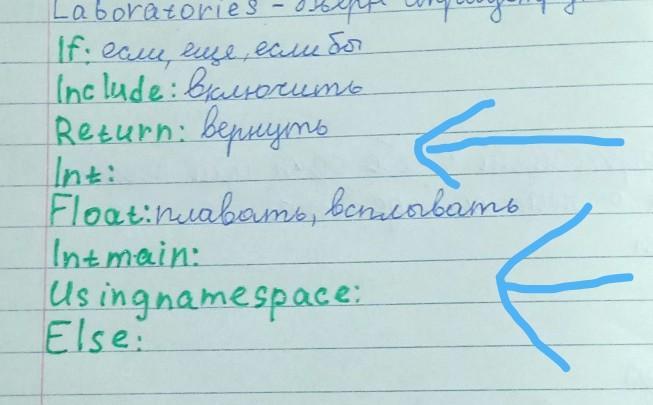 Laboratories -
If: если, еще, если бы
Include: включить
Return: вернуть
Int:
Float: плавать, всплывать
Intmain:
Usingnamespace:
Else: